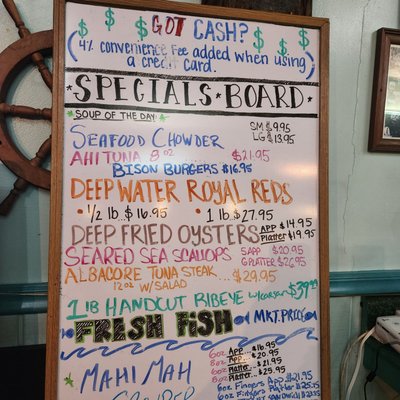 GOT CASH?
(4% convenience fee added when using
a credit card.)
SPECIALS BOARD
SOUP OF THE DAY
SEAFOOD CHOWDER SM $9.95
LG $13.95
AHI TUNA 8oz $21.95
BISON BURGERS $16.95
DEEP WATER ROYAL REDS
• 1/2 lb...$16.95 • 1 lb.$27.95
DEEP FRIED OYSTERS APP $14.95
Platter $19.95
SEARED SEA SCALLOPS $APP $20.95
PLATTER $26.95
ALBACORE TUNA STEAK....$29.95
12oz W/SALAD
1lB HANDCUT RIBEYE $39.95
FRESH FISH • MKT.PRICE
MAHI MAH 6oz APP.. $16.95
8oz APP.. $20.95
6oz Platter.. $21.95
8oz Platter.. $25.95
6oz Fingers APP $21.95